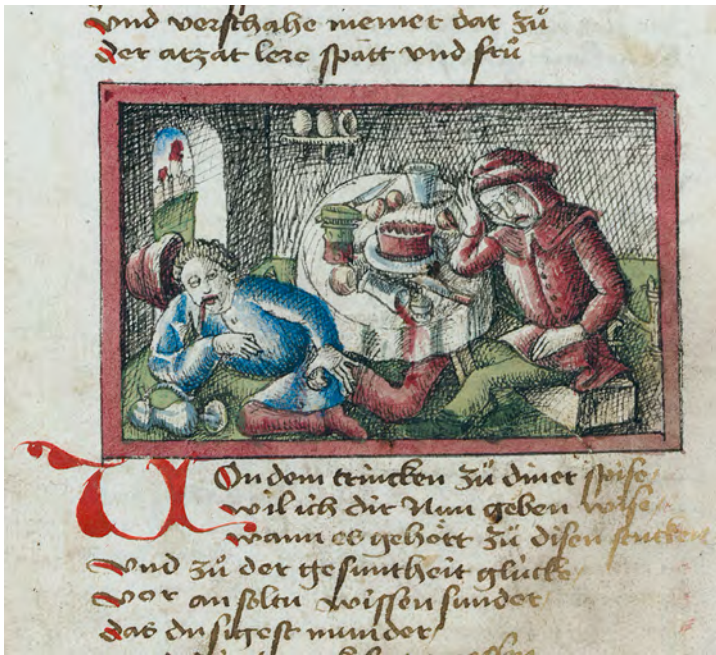 vnd verschahe memer dar zů
der artzat lere spätt vnd frů
VOn dem trincken zů diner spise
wil ich dir Nun geben wise
wann es gehört zů disen stucken
vnd zů der gesuntheit glücke
vor an soltu wissen sunder
das du sigest munder